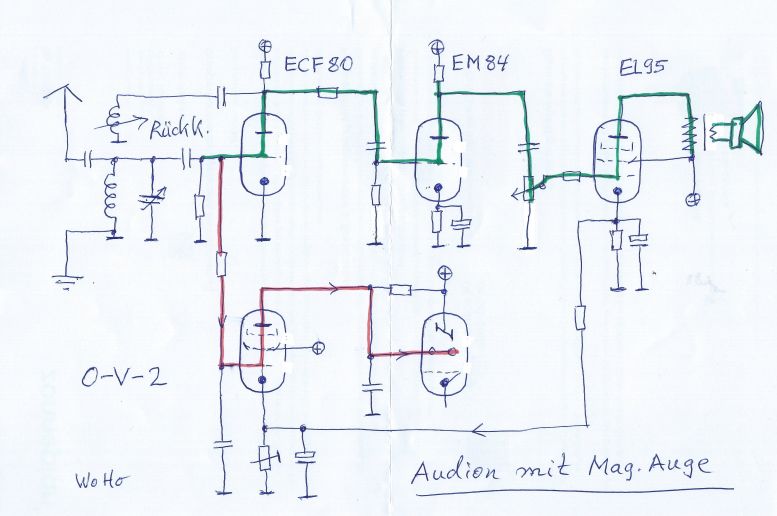 ECF80
EM84
EL95
Rückk.
O-V-2
WoHo
Audion mit Mag. Auge